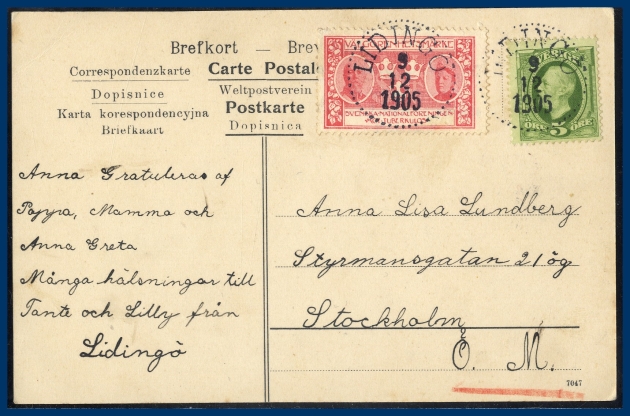 Brefkort — Brev
Correspondenzkarte Carte Postale
Dopisnice Weltpostverein
Karta korespondencyjna Postkarte
Briefkaart Dopisnica
VÄLGÖRENHETSMÄRKE
SVENSKA NATIONALFÖRENINGEN
TUBERKULOS
LIDINGÖ
9
12
1905
LIDINGÖ
9
12
1905
ÖRE 5 ÖRE
Anna Gratuleras af
Pappa, Mamma och
Anna Greta
Många hälsningar till
Tante och Lilly från
Lidingö
Anna Lisa Lundberg
Styrmansgatan 21 ög
Stockholm
Ö. M.
7047